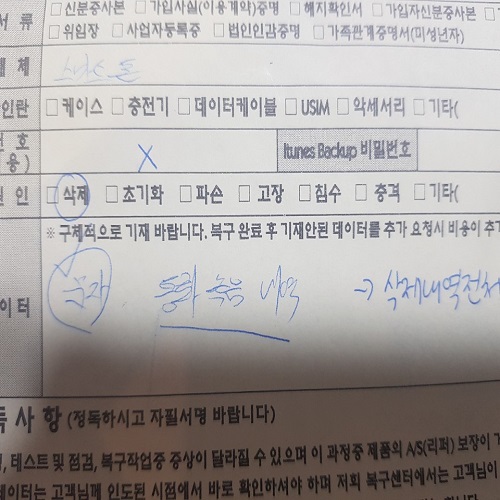 서 류 □ 신분증사본 □ 가입사실(이용계약)증명 □ 해지확인서 □ 가입자신분증사본 □
□ 위임장 □ 사업자등록증 □ 법인인감증명 □ 가족관계증명서(미성년자)
체
인란 □ 케이스 □ 충전기 □ 데이터케이블 □ USIM □ 악세서리 □ 기타(
호
용) X Itunes Backup 비밀번호
인 □ 삭제 □ 초기화 □ 파손 □ 고장 □ 침수 □ 충격 □ 기타(
※ 구체적으로 기재 바랍니다. 복구 완료 후 기재안된 데이터를 추가 요청시 비용이 추가
이터 문자 통화 녹음 내역 → 삭제내역전체
득 사 항 (정독하시고 자필서명 바랍니다)
, 테스트 및 점검, 복구작업중 증상이 달라질 수 있으며 이 과정중 제품의 A/S(리퍼) 보장이
데이터는 고객님께 인도된 시점에서 바로 확인하셔야 하며 저희 복구센터에서는 고객님이